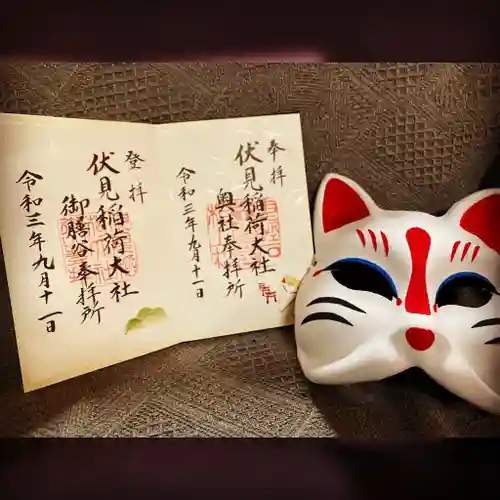 奉拝
伏見稲荷大社
奥社奉拝所
令和三年九月十一日
登拝
伏見稲荷大社
御膳谷奉拝所
令和三年九月十一日